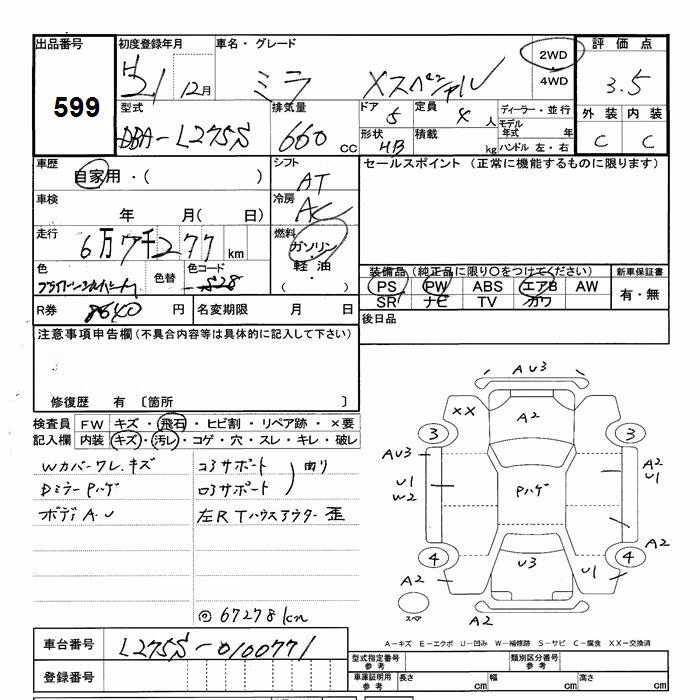 出品番号 初度登録年月 車名・グレード 評価点
599
H21 12月 ミラ Xスペシャル 2WD 4WD 3.5
型式 排気量 ドア 定員 ディーラー・並行 外装 内装
DBA-L275S 660 CC 5 4人 モデル年式 年 C C
形状 HB 積載 kg ハンドル 左・右
車歴 シフト セールスポイント (正常に機能するものに限ります)
自家用・( ) AT
車検 冷房
年 月( 日) AC
走行 燃料
6万7千277 km ガソリン
軽油
・( )
色 色替 色コード 装備品(純正品に限り〇をつけてください) 新車保証書
S28 PS PW ABS エアB AW 有・無
SR ナビ TV カワ
R券 8640 円 名変期限 月 日 後日品
注意事項申告欄(不具合内容等は具体的に記入して下さい)
修復歴 有 〔箇所 〕
検査員 FW キズ・飛石・ヒビ割・リペア跡・×要
記入欄 内装 キズ・汚レ・コゲ・穴・スレ・キレ・破レ
Wカバーワレ.キズ コアサポート 曲り
DミラーPハゲ ロアサポート
ボディA.U 左RTハウスアウター歪
◎67278km
AU3
XX A2
3 3
AU3 A2
U1 U1
W2 Pハゲ
4 4 A2
U3 U1
A2
スペア A2
A-キズ E-エクボ U-凹み W-補修跡 S-サビ C-腐食 XX-交換済
車台番号 L275S-0100771
型式指定番号 参考 類別区分番号 参考
登録番号
車庫証明用 参考 長さ cm 幅 cm 高さ cm